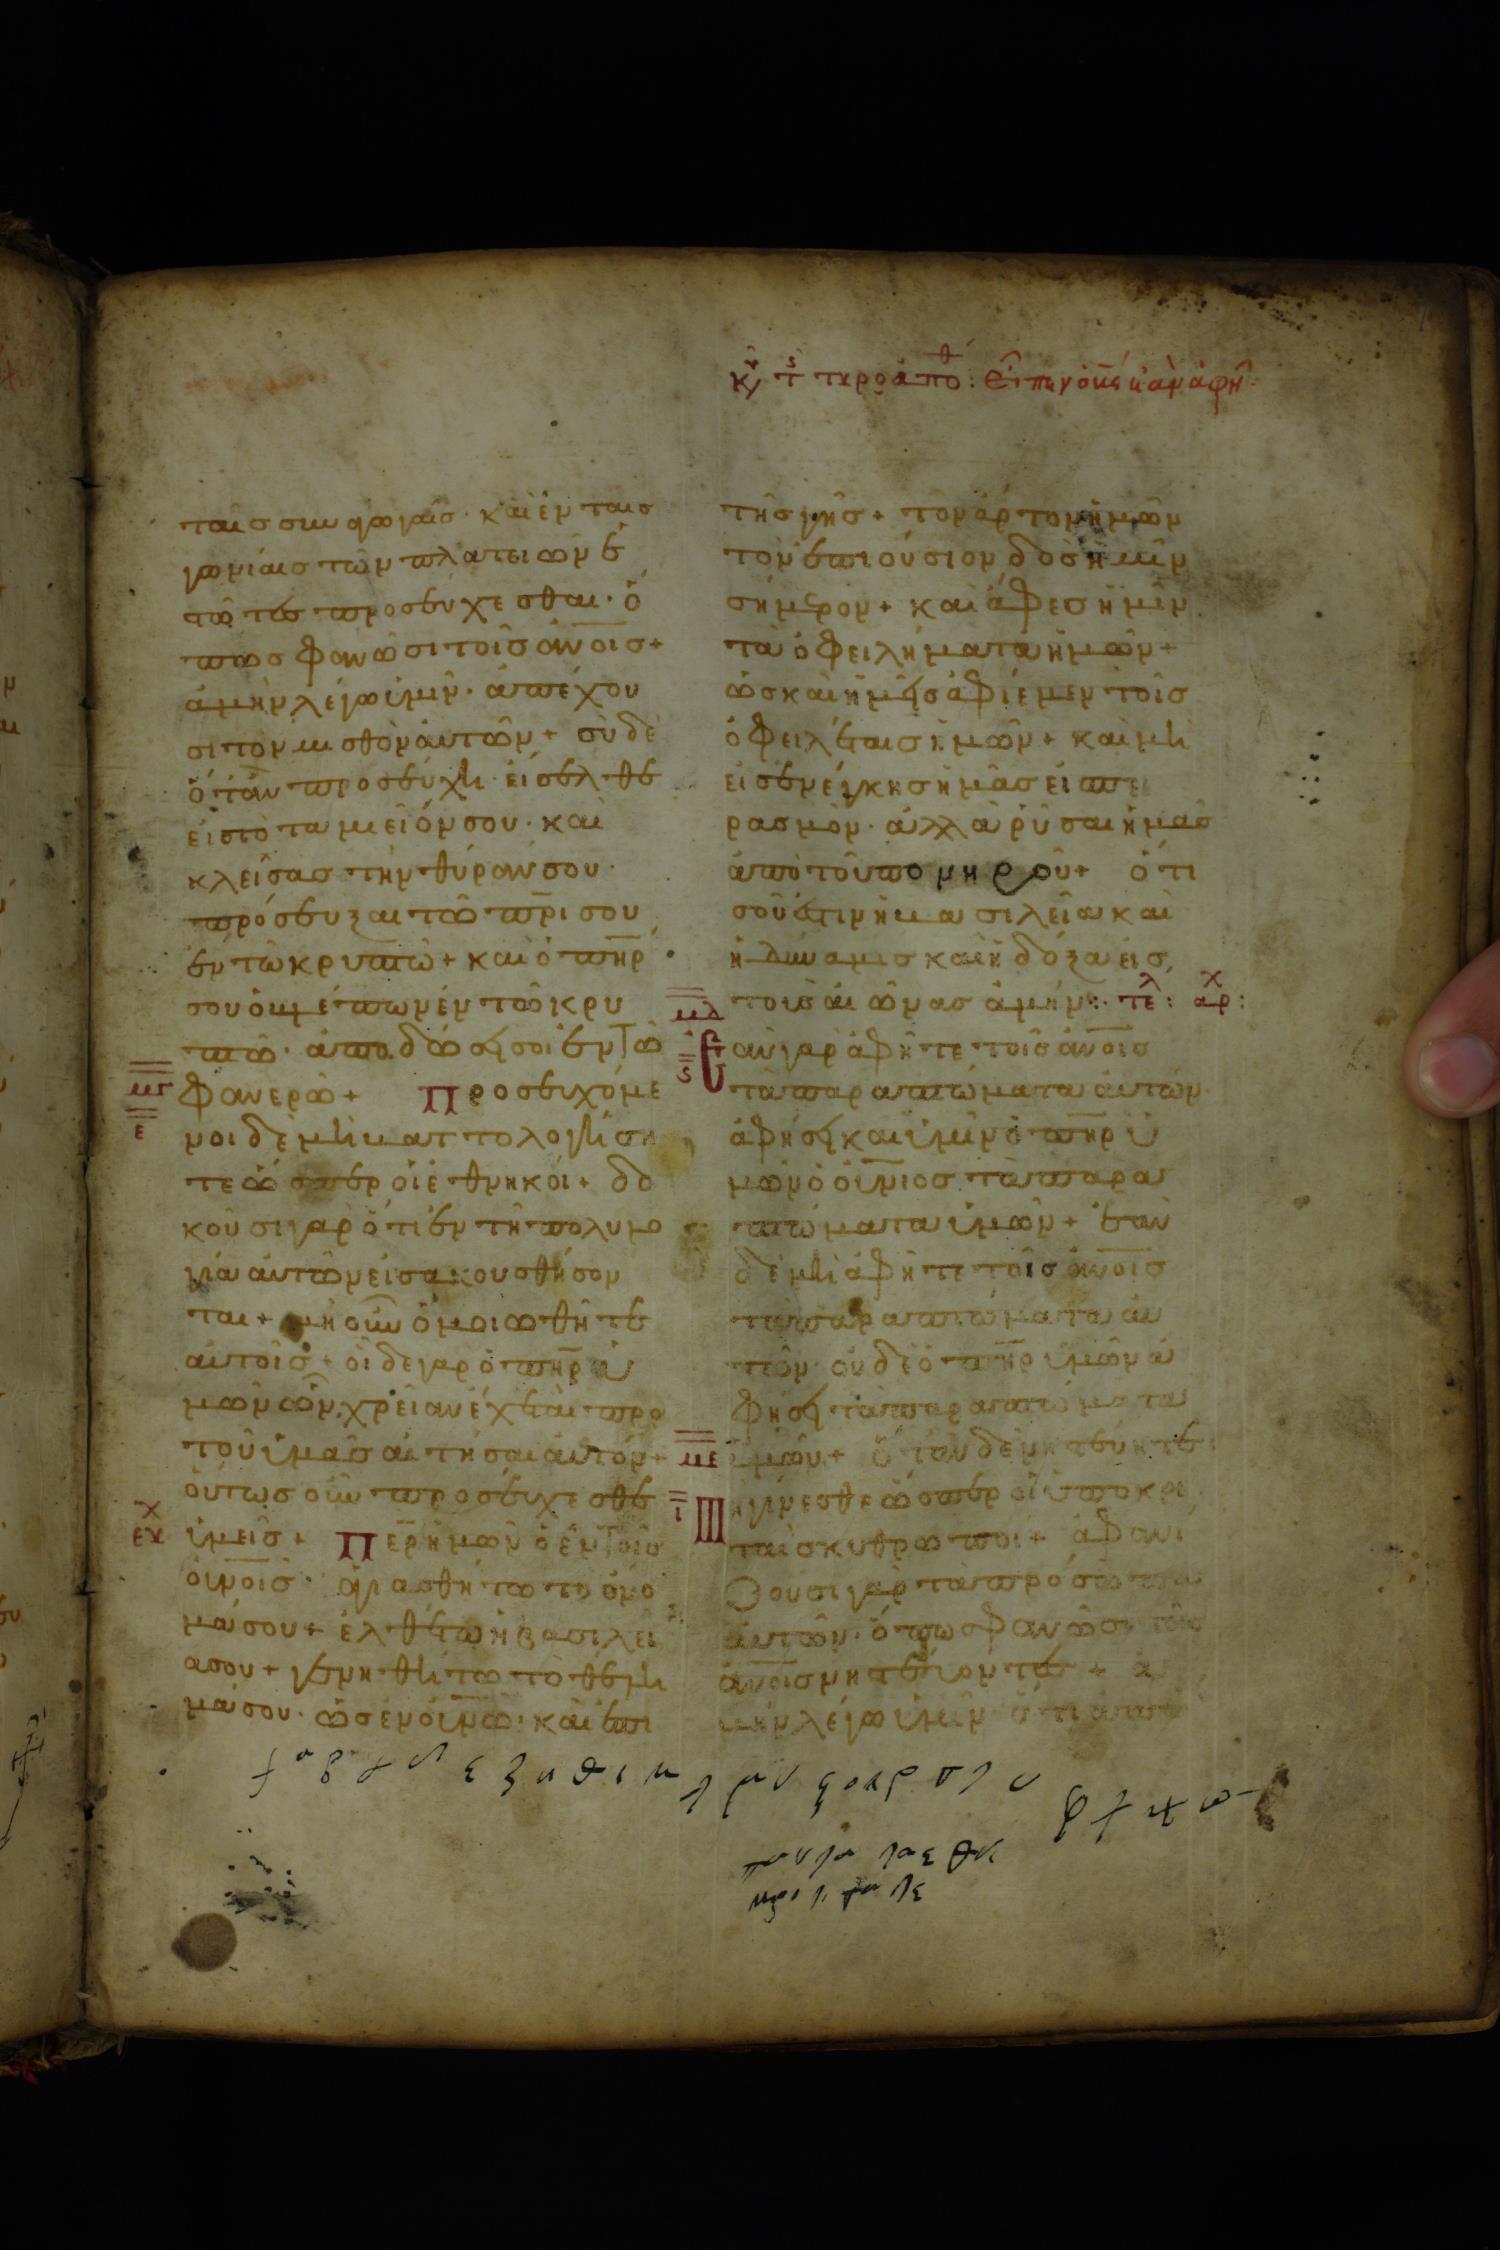 κυ τ τυροαπο: Ειπεν ο κς εαν αφη
ταῖσ συναγωγαῖσ· καὶ ἐν ταισ
γωνίαισ τῶν πλατειῶν ἑ
στῶτεσ προσεύχεσθαι· ὅ
πωσ φανῶσι τοῖσ ἀνοισ+
ἀμὴν λέγω ὑμῖν· ἀπέχου
σι τὸν μισθὸν αὐτῶν+ σὺ δὲ
ὅταν προσεύχη· εἴσελθε
εἰσ τὸ ταμιεῖόν σου· καὶ
κλείσασ τὴν θύραν σου·
πρόσευξαι τῶ πρι σου
ἐν τῶ κρυπτῶ+ καὶ ὁ πηρ
σου ὁ βλέπων ἐν τῶ κρυ
πτῶ· ἀποδώσει σοι ἐν τῶ
μγ
ε
φανερῶ+ Προσευχόμε
νοι δὲ μὴ βαττολογήση
τε ὥσπερ οἱ ἐθνικόι+ δο
κοῦσι γὰρ ὅτι ἐν τῆ πολυλο
γία αὐτῶν εἰσακουσθήσον
ται+ μὴ οὖν ὁμοιωθῆτε
αὐτοῖσ+ οἶδε γαρ ὁ πηρ ὑ
μῶν ὧν χρείαν ἔχεται προ
τοῦ ὑμᾶσ αἰτῆσαι αὐτόν+
ὅυτωσ οὖν προσεύχεσθε
αρχ
ὑμεῖσ+ Περ ἡμῶν ὁ ἐν τοῖσ
οὐνοισ· ἁγιασθήτω τὸ ὄνο
μά σου+ ἐλθέτω ἡ βασιλεί
α σου+ γενηθήτω τὸ θέλη
μά σου· ὡσ ἐν οὐνω· καὶ ἐπι
τῆσ γῆσ+ τὸν ἄρτον ἡμῶν
τὸν ἐπιούσιον δὸσ ἡμῖν
σήμερον+ καὶ ἄφεσ ἡμῖν
τὰ ὀφειλήματα ἡμῶν+
ὡσ καὶ ἡμεῖσ ἀφίεμεν τοῖσ
ὀφειλέταισ ἡμῶν+ καὶ μὴ
εἰσενέγκησ ἡμᾶσ εἰσ πει
ρασμόν· ἀλλὰ ρῦσαι ἡμᾶσ
ἀπὸ τοῦ πονηροῦ+ ὅτι
σοῦ ἐστιν ἡ βασιλεία καὶ
ἡ δύναμισ καὶ ἡ δόξα εἰσ
τοὺσ αἰῶνασ ἀμήν: τελ: αρχ:
μδ
ς
Εὰν γὰρ ἀφῆτε τοῖσ ἀνοισ
τὰ παραπτώματα αὐτῶν
ἀφήσει καὶ ὑμῖν ὁ πηρ ὑ
μῶν ὁ οὐνιοσ τὰ παρα
πτώματα ὑμῶν+ ἐὰν
δὲ μὴ ἀφῆτε τοῖσ ἀνοισ
τὰ παραπτώματα αὐ
τῶν· οὐδὲ ὁ πηρ ὑμῶν ἀ
φήσει τὰ παραπτώματα
με
ι
ὑμῶν+ ὅταν δὲ νηστεύητε
μὴ γίνεσθε ὥσπερ οἱ ὑποκρι
ταὶ σκυθρωποι+ ἀφανί
ζουσι γὰρ τὰ πρόσωπα
αὐτῶν· ὅπωσ φανῶσι τοῖσ
ἀνοισ νηστεύοντεσ+ ἀ
μὴν λέγω ὑμῖν ὅτι ἀπέ